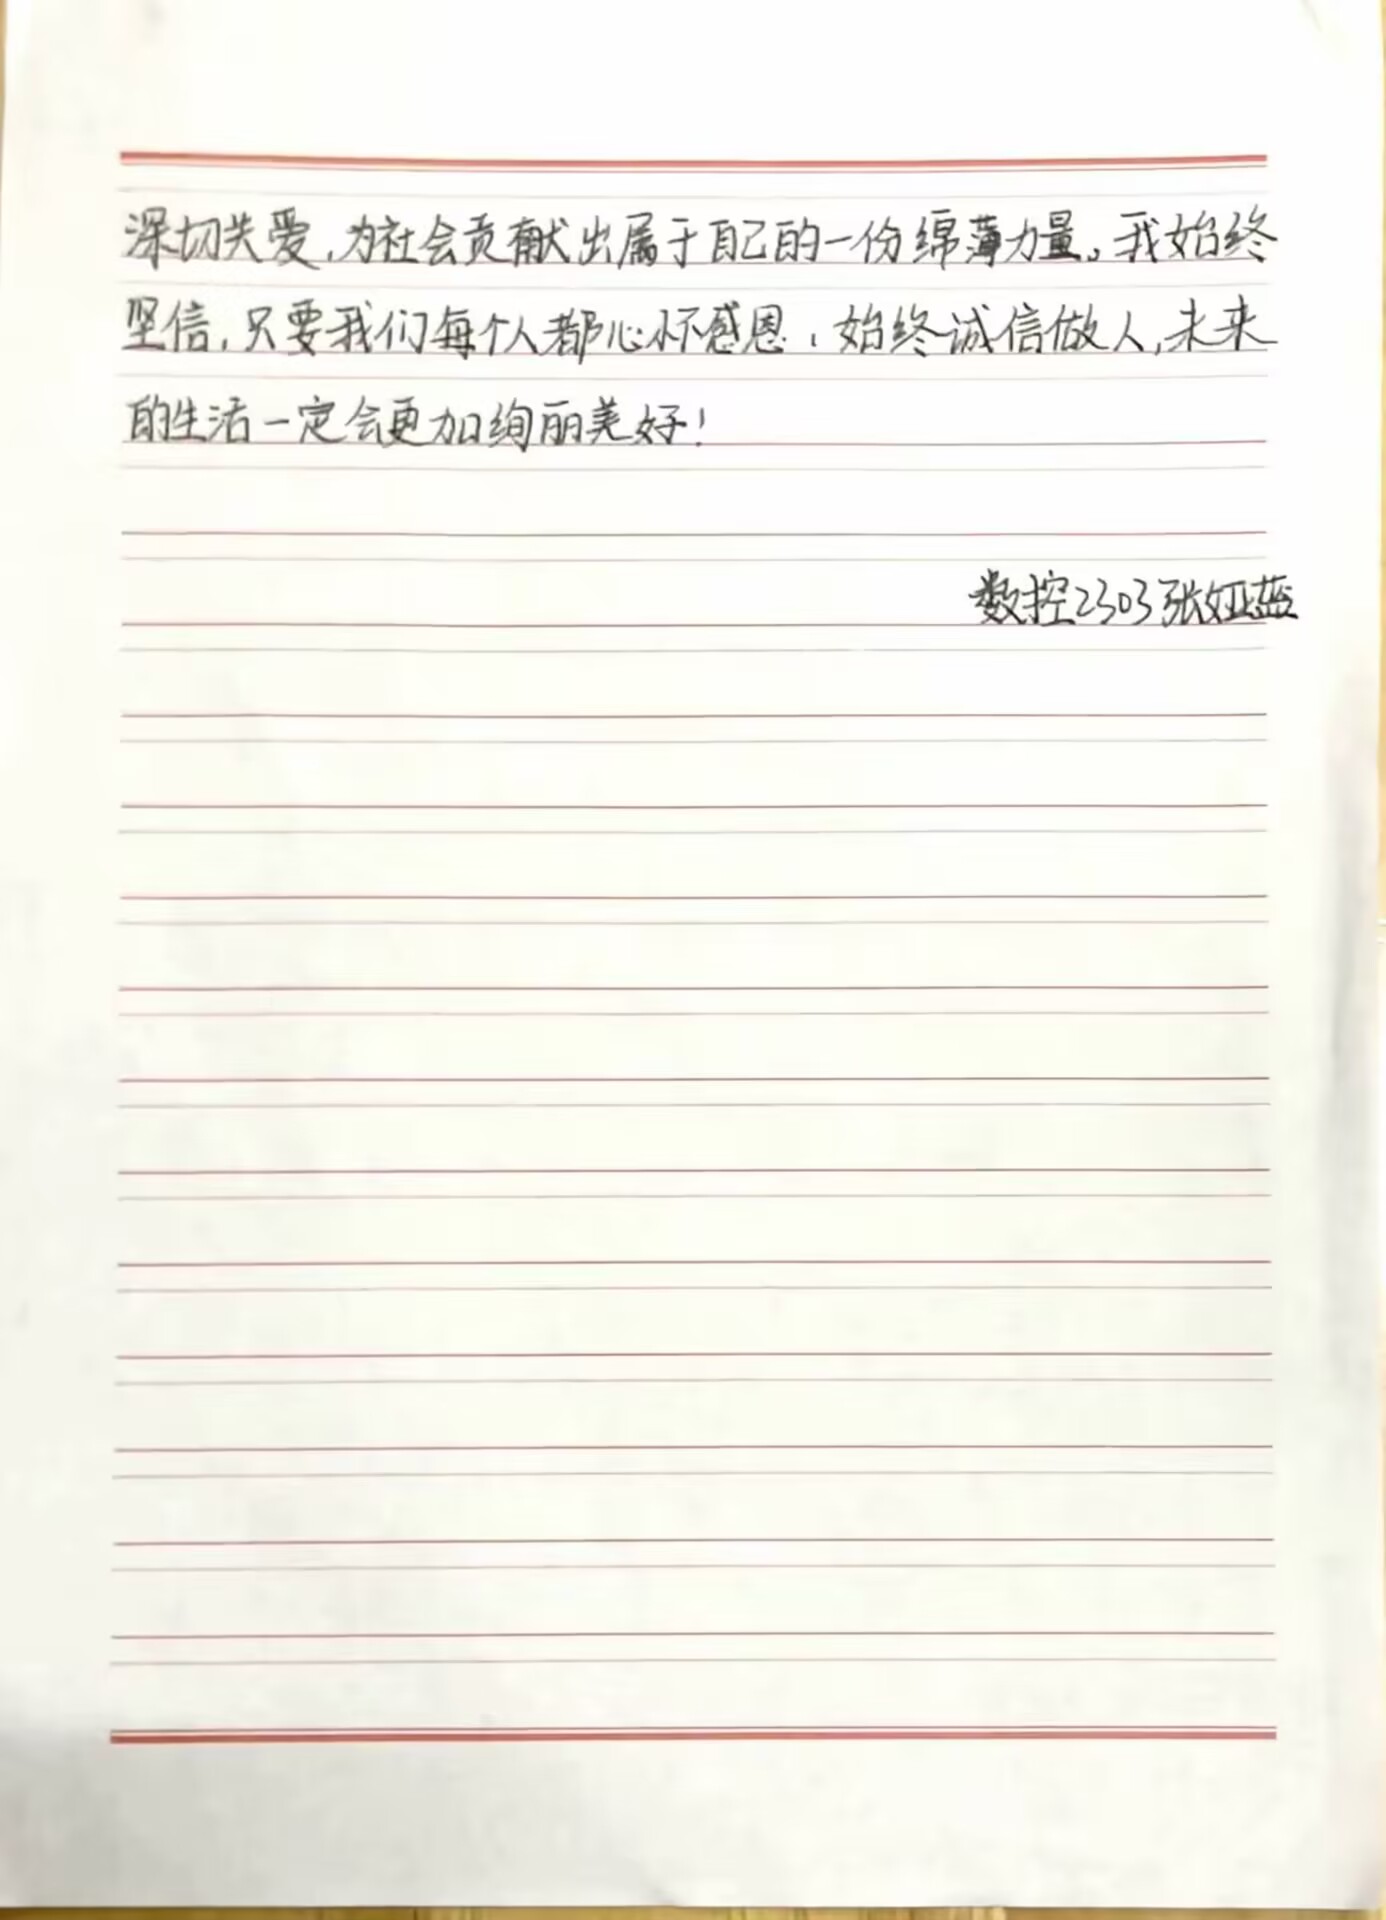 深切关爱,为社会贡献出属于自己的一份绵薄力量。我始终
坚信,只要我们每个人都心怀感恩,始终诚信做人,未来
的生活一定会更加绚丽美好!
数控2303张娅蕊